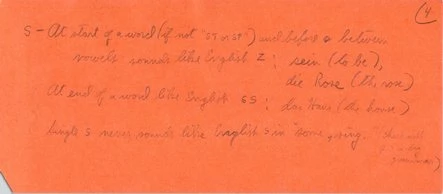 4
S - At start of a word (if not "ST or SP") and before or between
vowels sounds like English Z : sein (to be),
die Rose (the rose)
At end of a word like English SS : das Haus (the house)
Single S never sounds like English S in "some, sing.